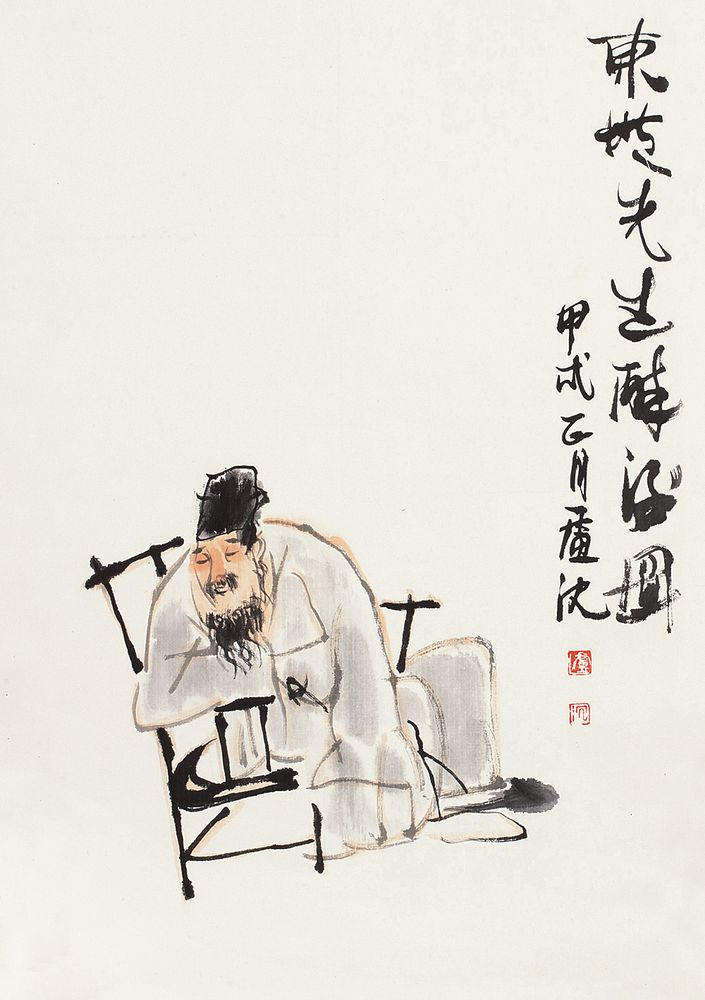 東坡先生醉酒圖
甲戌正月盧沈
盧
沈